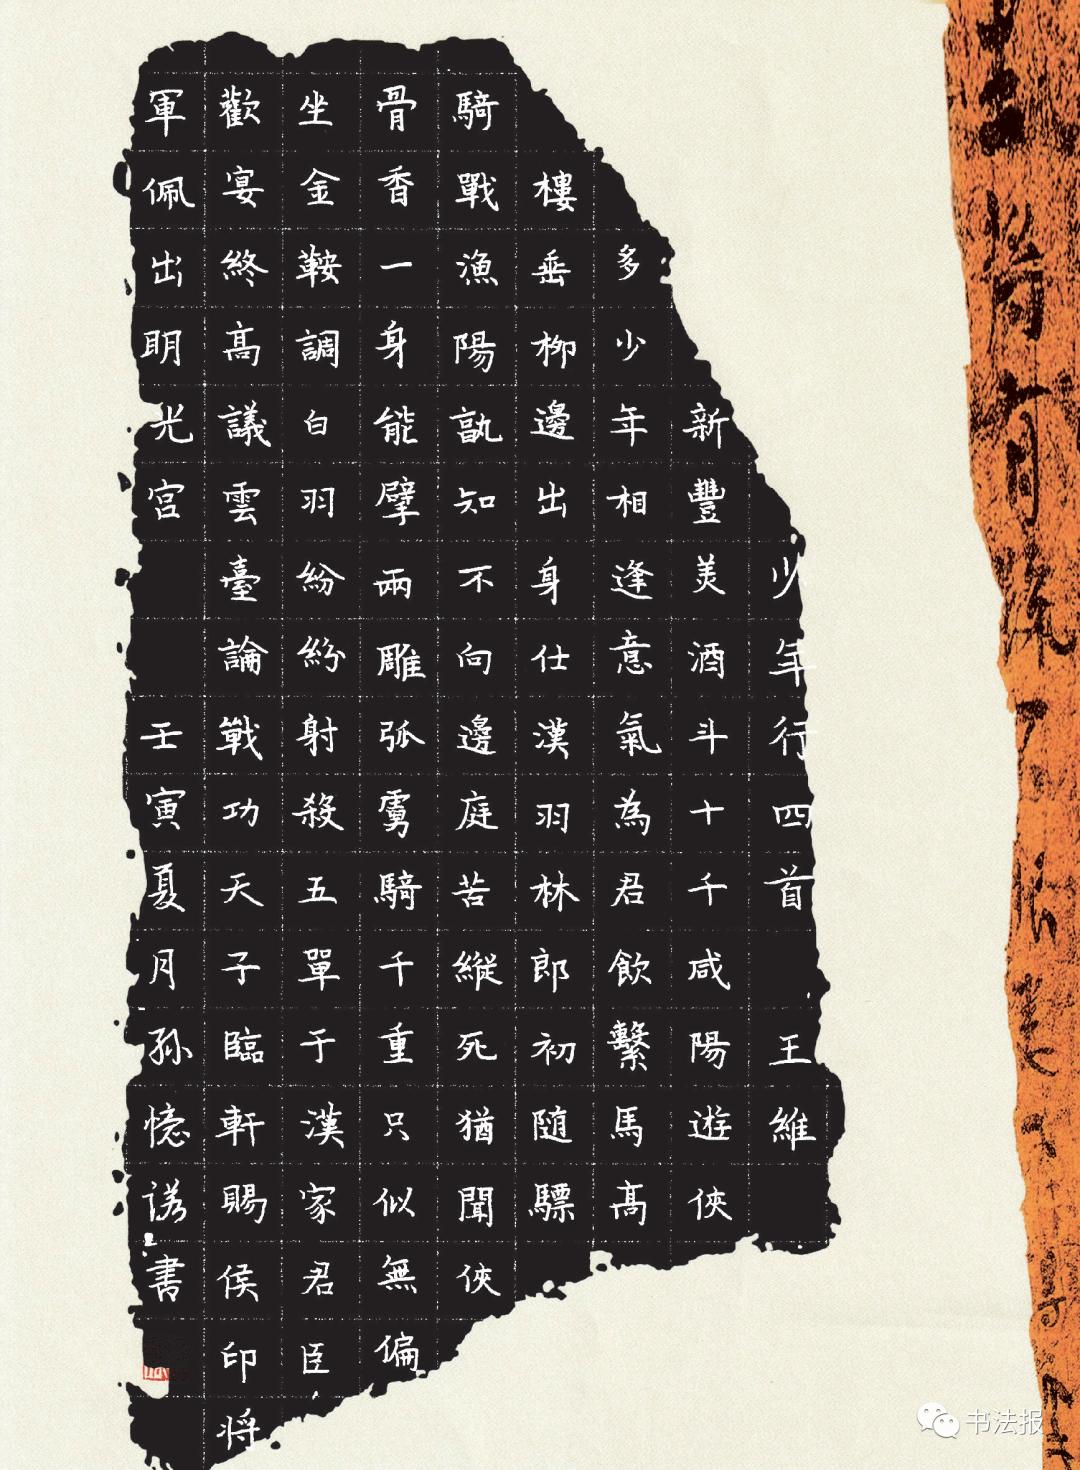 少年行四首 王維
新豐美酒斗十千咸陽遊俠
多少年相逢意氣為君飲繫馬高
樓垂柳邊出身仕漢羽林郎初隨驃
騎戰漁陽孰知不向邊庭苦縱死猶聞俠
骨香一身能擘兩雕弧虜騎千重只似無偏
坐金鞍調白羽紛紛射殺五單于漢家君臣
歡宴終高議雲臺論戰功天子臨軒賜侯印将
軍佩出明光宮 壬寅夏月孫憶書
书法报